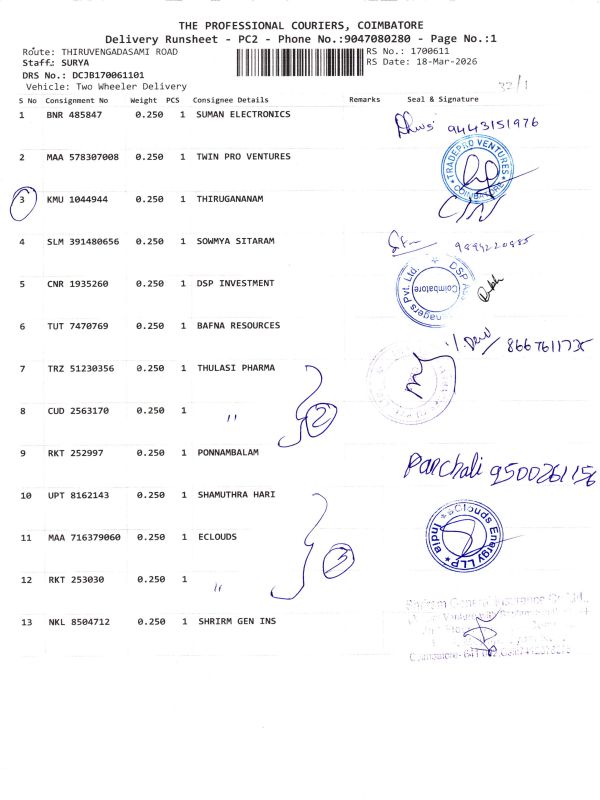 THE PROFESSIONAL COURIERS, COIMBATORE
Delivery Runsheet - PC2 - Phone No.:9047080280 - Page No.:1
Route: THIRUVENGADASAMI ROAD
RS No.: 1700611
Staff.: SURYA
RS Date: 18-Mar-2026
DRS No.: DCJB170061101
Vehicle: Two Wheeler Delivery
32/1
S No Consignment No Weight PCS Consignee Details Remarks Seal & Signature
1 BNR 485847 0.250 1 SUMAN ELECTRONICS 9443151976
2 MAA 578307008 0.250 1 TWIN PRO VENTURES TRADEPRO VENTURES COIMBATORE
3 KMU 1044944 0.250 1 THIRUGANANAM
4 SLM 391480656 0.250 1 SOWMYA SITARAM
5 CNR 1935260 0.250 1 DSP INVESTMENT DSP Pvt. Ltd. Coimbatore
6 TUT 7470769 0.250 1 BAFNA RESOURCES
7 TRZ 51230356 0.250 1 THULASI PHARMA
8 CUD 2563170 0.250 1 " 2
9 RKT 252997 0.250 1 PONNAMBALAM Panchali 9500261156
10 UPT 8162143 0.250 1 SHAMUTHRA HARI
11 MAA 716379060 0.250 1 ECLOUDS eClouds Energy LLP India
12 RKT 253030 0.250 1 " 3
13 NKL 8504712 0.250 1 SHRIRM GEN INS